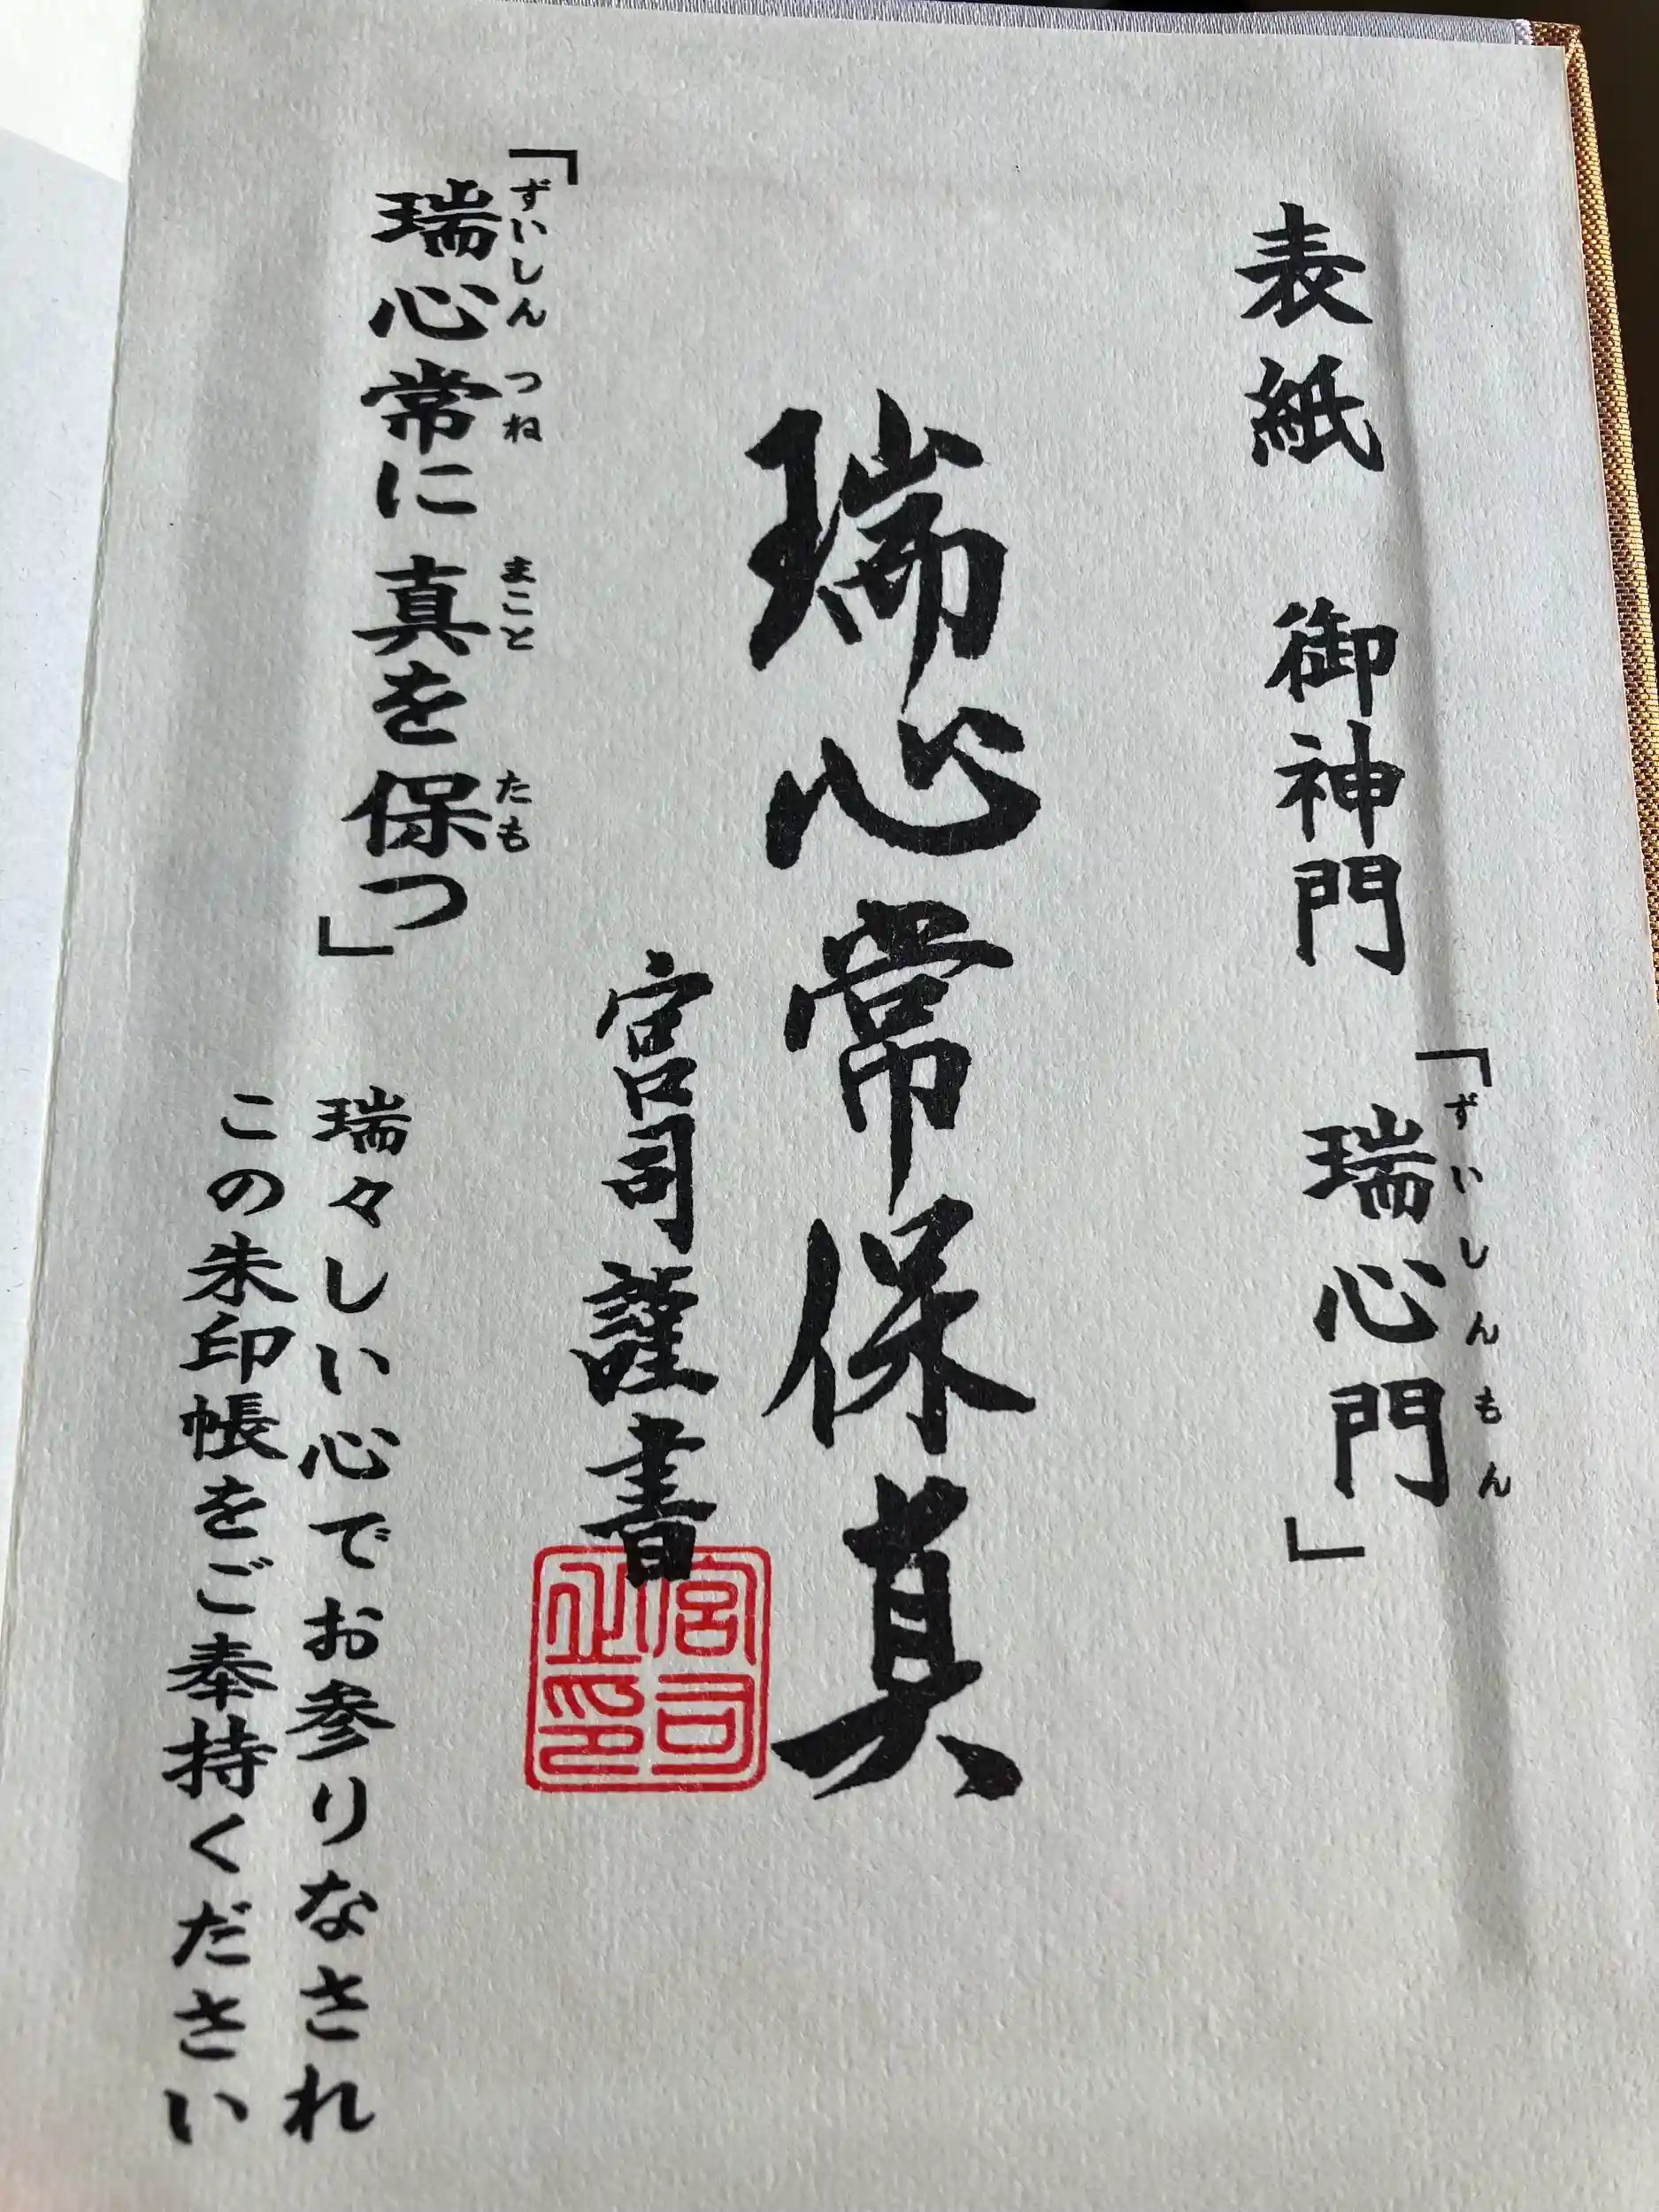 表紙 御神門 「瑞心門」
ずいしんもん
瑞心常保真
宮司謹書
宮司之印
「瑞心常に真を保つ」
ずいしん つね まこと たも
瑞々しい心でお参りなされ
この朱印帳をご奉持ください